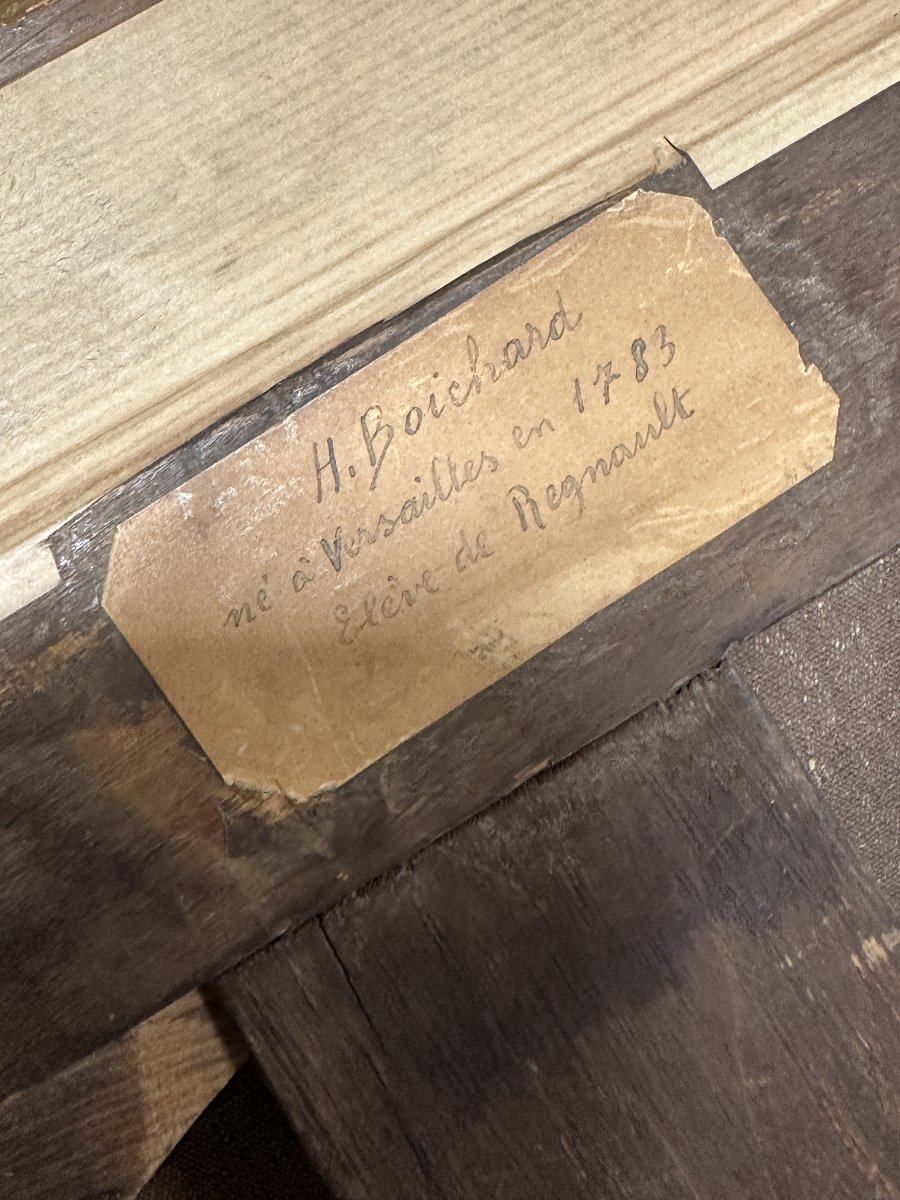 H. Boichard
né à Versailles en 1783
Elève de Regnault